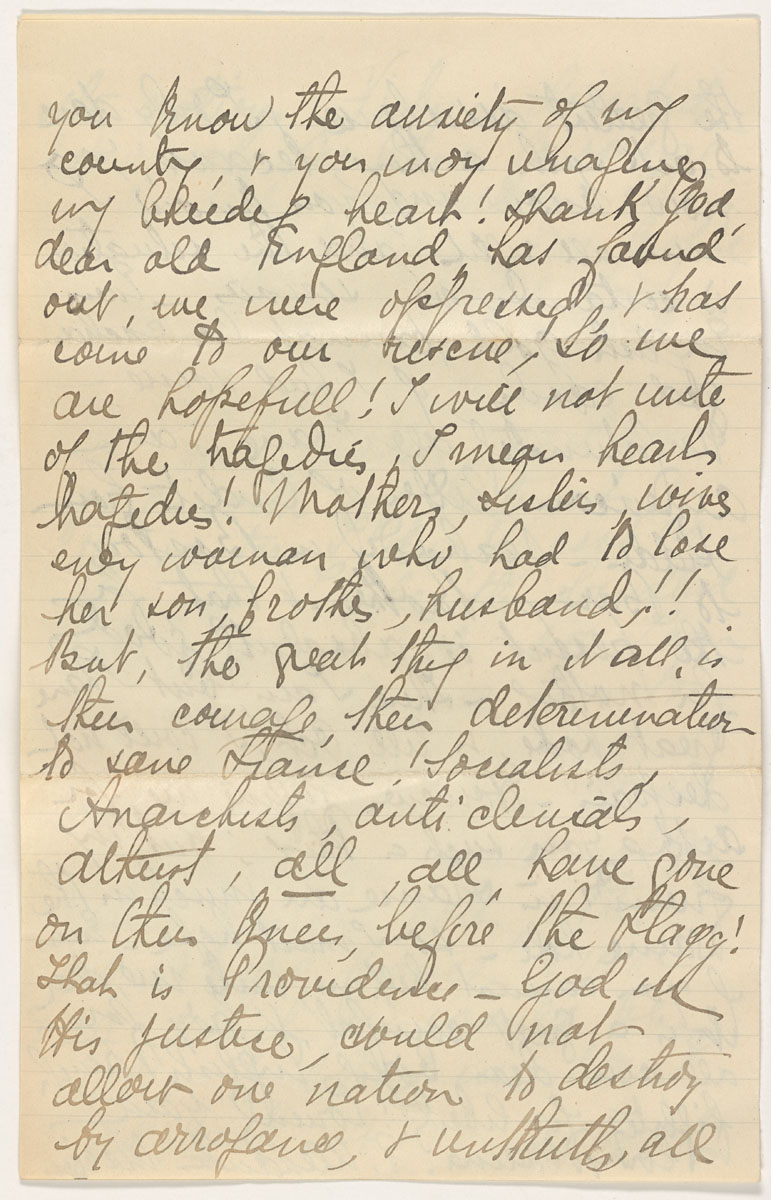 you know the anxiety of my
country, & you may imagine
my bleeding heart! Thank God,
dear old England, has found
out, we were oppressed, & has
come to our rescue! So we
are hopefull! I will not write
of the tragedies, I mean hearts
tragedies! Mothers, sisters, wives
every woman who had to lose
her son, brother, husband,!!
But, the great thing in it all, is
their courage, their determination
to save France! Socialists,
Anarchists, anti clericals,
atheist, all, all, have gone
on their knees, before the Flagg!
That is Providence – God in
His justice, could not
allow one nation to destroy
by arrogance, & untruths, all